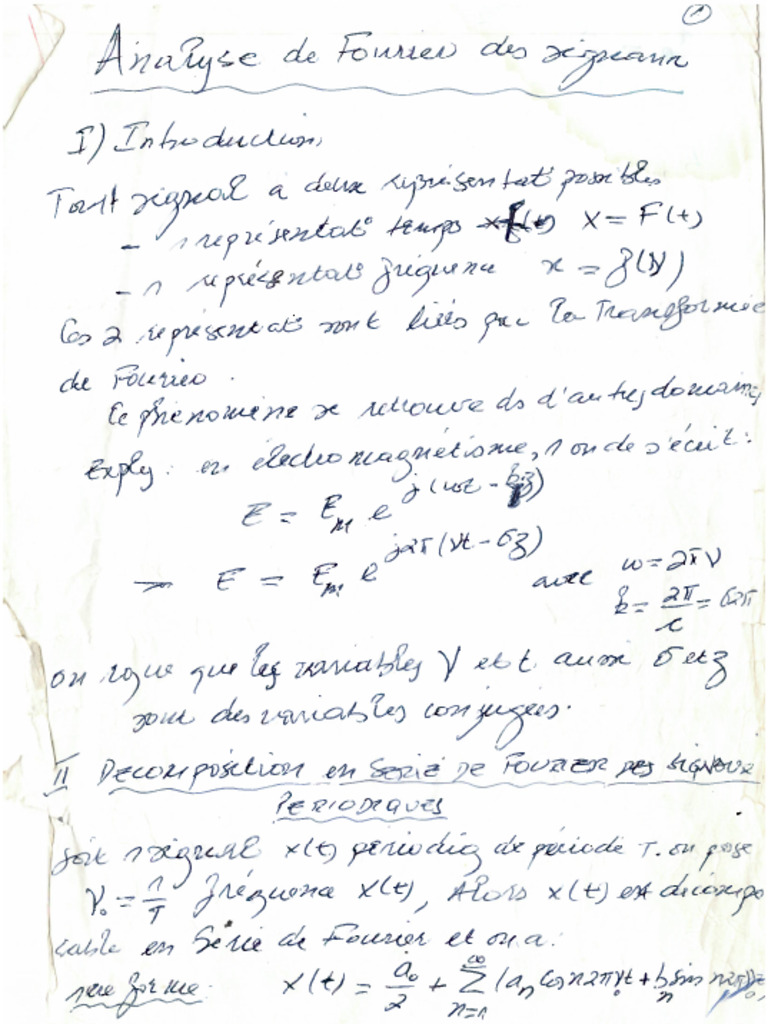 1
Analyse de Fourier des signaux
I) Introduction,
Tout signal a deux représentat° possibles
- 1 représentat° temps X = F(t)
- 1 représentat° fréquence x = f(ν)
Ces 2 représentat° sont liées par la Transformée
de Fourier.
Ce phénomène se retrouve ds d'autres domaines
Exple : en électromagnétisme, 1 onde s'écrit :
E = E_m e^{j(ωt - kz)}
→ E = E_m e^{j2π(νt - σz)} avec ω = 2πν
k = 2π/c = σ2π
on rque que les variables ν et t aussi σ et z
sont des variables conjuguées.
II DECOMPOSITION en SERIE DE FOURIER DES SIGNAUX
PERIODIQUES
Soit 1 signal x(t) périodiq de période T. on pose
ν₀ = 1/T fréquence x(t), Alors x(t) est décompo
sable en Série de Fourier et on a :
1ère forme : x(t) = a₀/2 + Σ_{n=1}^{∞} (a_n cos n2πν₀t + b_n sin n2πν₀t